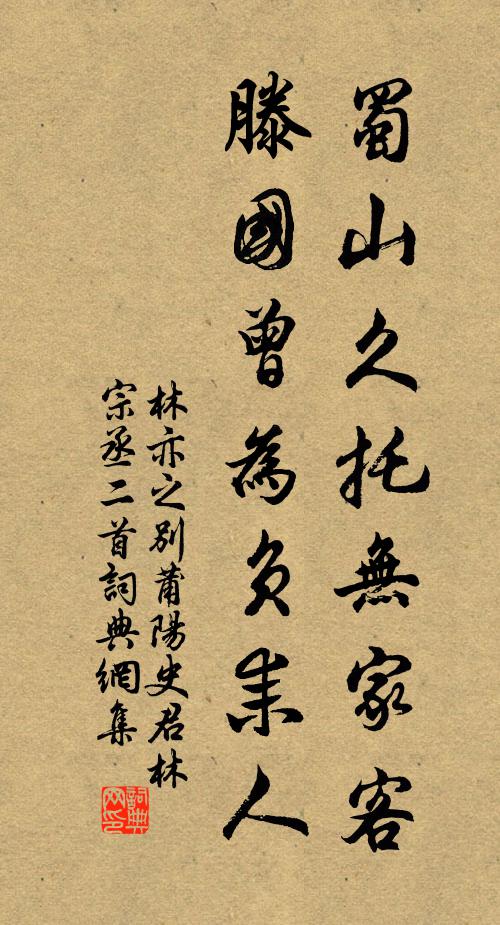 蜀山久托無家客
滕國曾為負耒人
林亦之別莆陽史君林
宗丞二首詞典網集
詞典網印